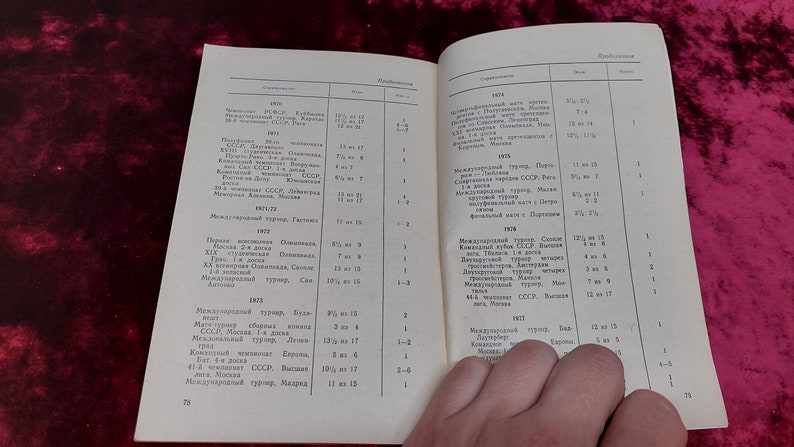 Продолжение
Соревнование Очки Место
1970
Чемпионат РСФСР, Куйбышев 12½ из 17 1
Международный турнир, Каракас 11½ из 17 4—6
38-й чемпионат СССР, Рига 12 из 21 5—7
1971
Полуфинал 39-го чемпионата
СССР, Даугавпилс 13 из 17 1
XVIII студенческая Олимпиада,
Пуэрто-Рико. 3-я доска 7½ из 8 1
Командный чемпионат Вооружен-
ных Сил СССР. 1-я доска 4 из 7
Командный чемпионат СССР, 6½ из 7 1
Ростов-на-Дону. Юношеская
доска
39-й чемпионат СССР, Ленинград 13 из 21 4
Мемориал Алехина, Москва 11 из 17 1—2
1971/72
Международный турнир, Гастингс 11 из 15 1—2
1972
Первая всесоюзная Олимпиада, 5½ из 9 3
Москва. 2-я доска
XIX студенческая Олимпиада, 7 из 9 1
Грац. 1-я доска
XX всемирная Олимпиада, Скопле. 13 из 15 1
1-й запасной
Международный турнир, Сан- 10½ из 15 1—3
Антонио
1973
Международный турнир, Буда- 9½ из 15 2
пешт
Матч-турнир сборных команд 3 из 4 1
СССР, Москва. 1-я доска
Межзональный турнир, Ленин- 13½ из 17 1—2
град
Командный чемпионат Европы, 5 из 6 1
Бат. 4-я доска
41-й чемпионат СССР. Высшая 10½ из 17 2—6
лига, Москва
Международный турнир, Мадрид 11 из 15 1
78
Продолжение
Соревнование Очки Место
1974
Четвертьфинальный матч претен- 5½ : 2½
дентов с Полугаевским, Москва
Полуфинальный матч претенден- 7 : 4
тов со Спасским, Ленинград
XXI всемирная Олимпиада, Ниц- 12 из 14 1
ца. 1-я доска
Финальный матч претендентов с 12½ : 11½
Корчным, Москва
1975
Международный турнир, Порто- 11 из 15 1
рож — Любляна
Спартакиада народов СССР, Рига. 5½ из 7 1
1-я доска
Международный турнир, Милан
круговой турнир 6½ из 11 1
полуфинальный матч с Петро- 2 : 2
сяном
финальный матч с Портишем 3½ : 2½
1976
Международный турнир, Скопле 12½ из 15 1
Командный кубок СССР. Высшая 4 из 6
лига, Тбилиси. 1-я доска
Двухкруговой турнир четырех 4 из 6 1
гроссмейстеров, Амстердам
Двухкруговой турнир четырех 3 из 6 2
гроссмейстеров, Манила
Международный турнир, Мон- 7 из 9 1
тилья
44-й чемпионат СССР. Высшая 12 из 17 1
лига, Москва
1977
Международный турнир, Бад- 12 из 15 1
Лаутерберг
Командное Европы, 5 из 5 1
Москва. 1
4—5
1
1
79